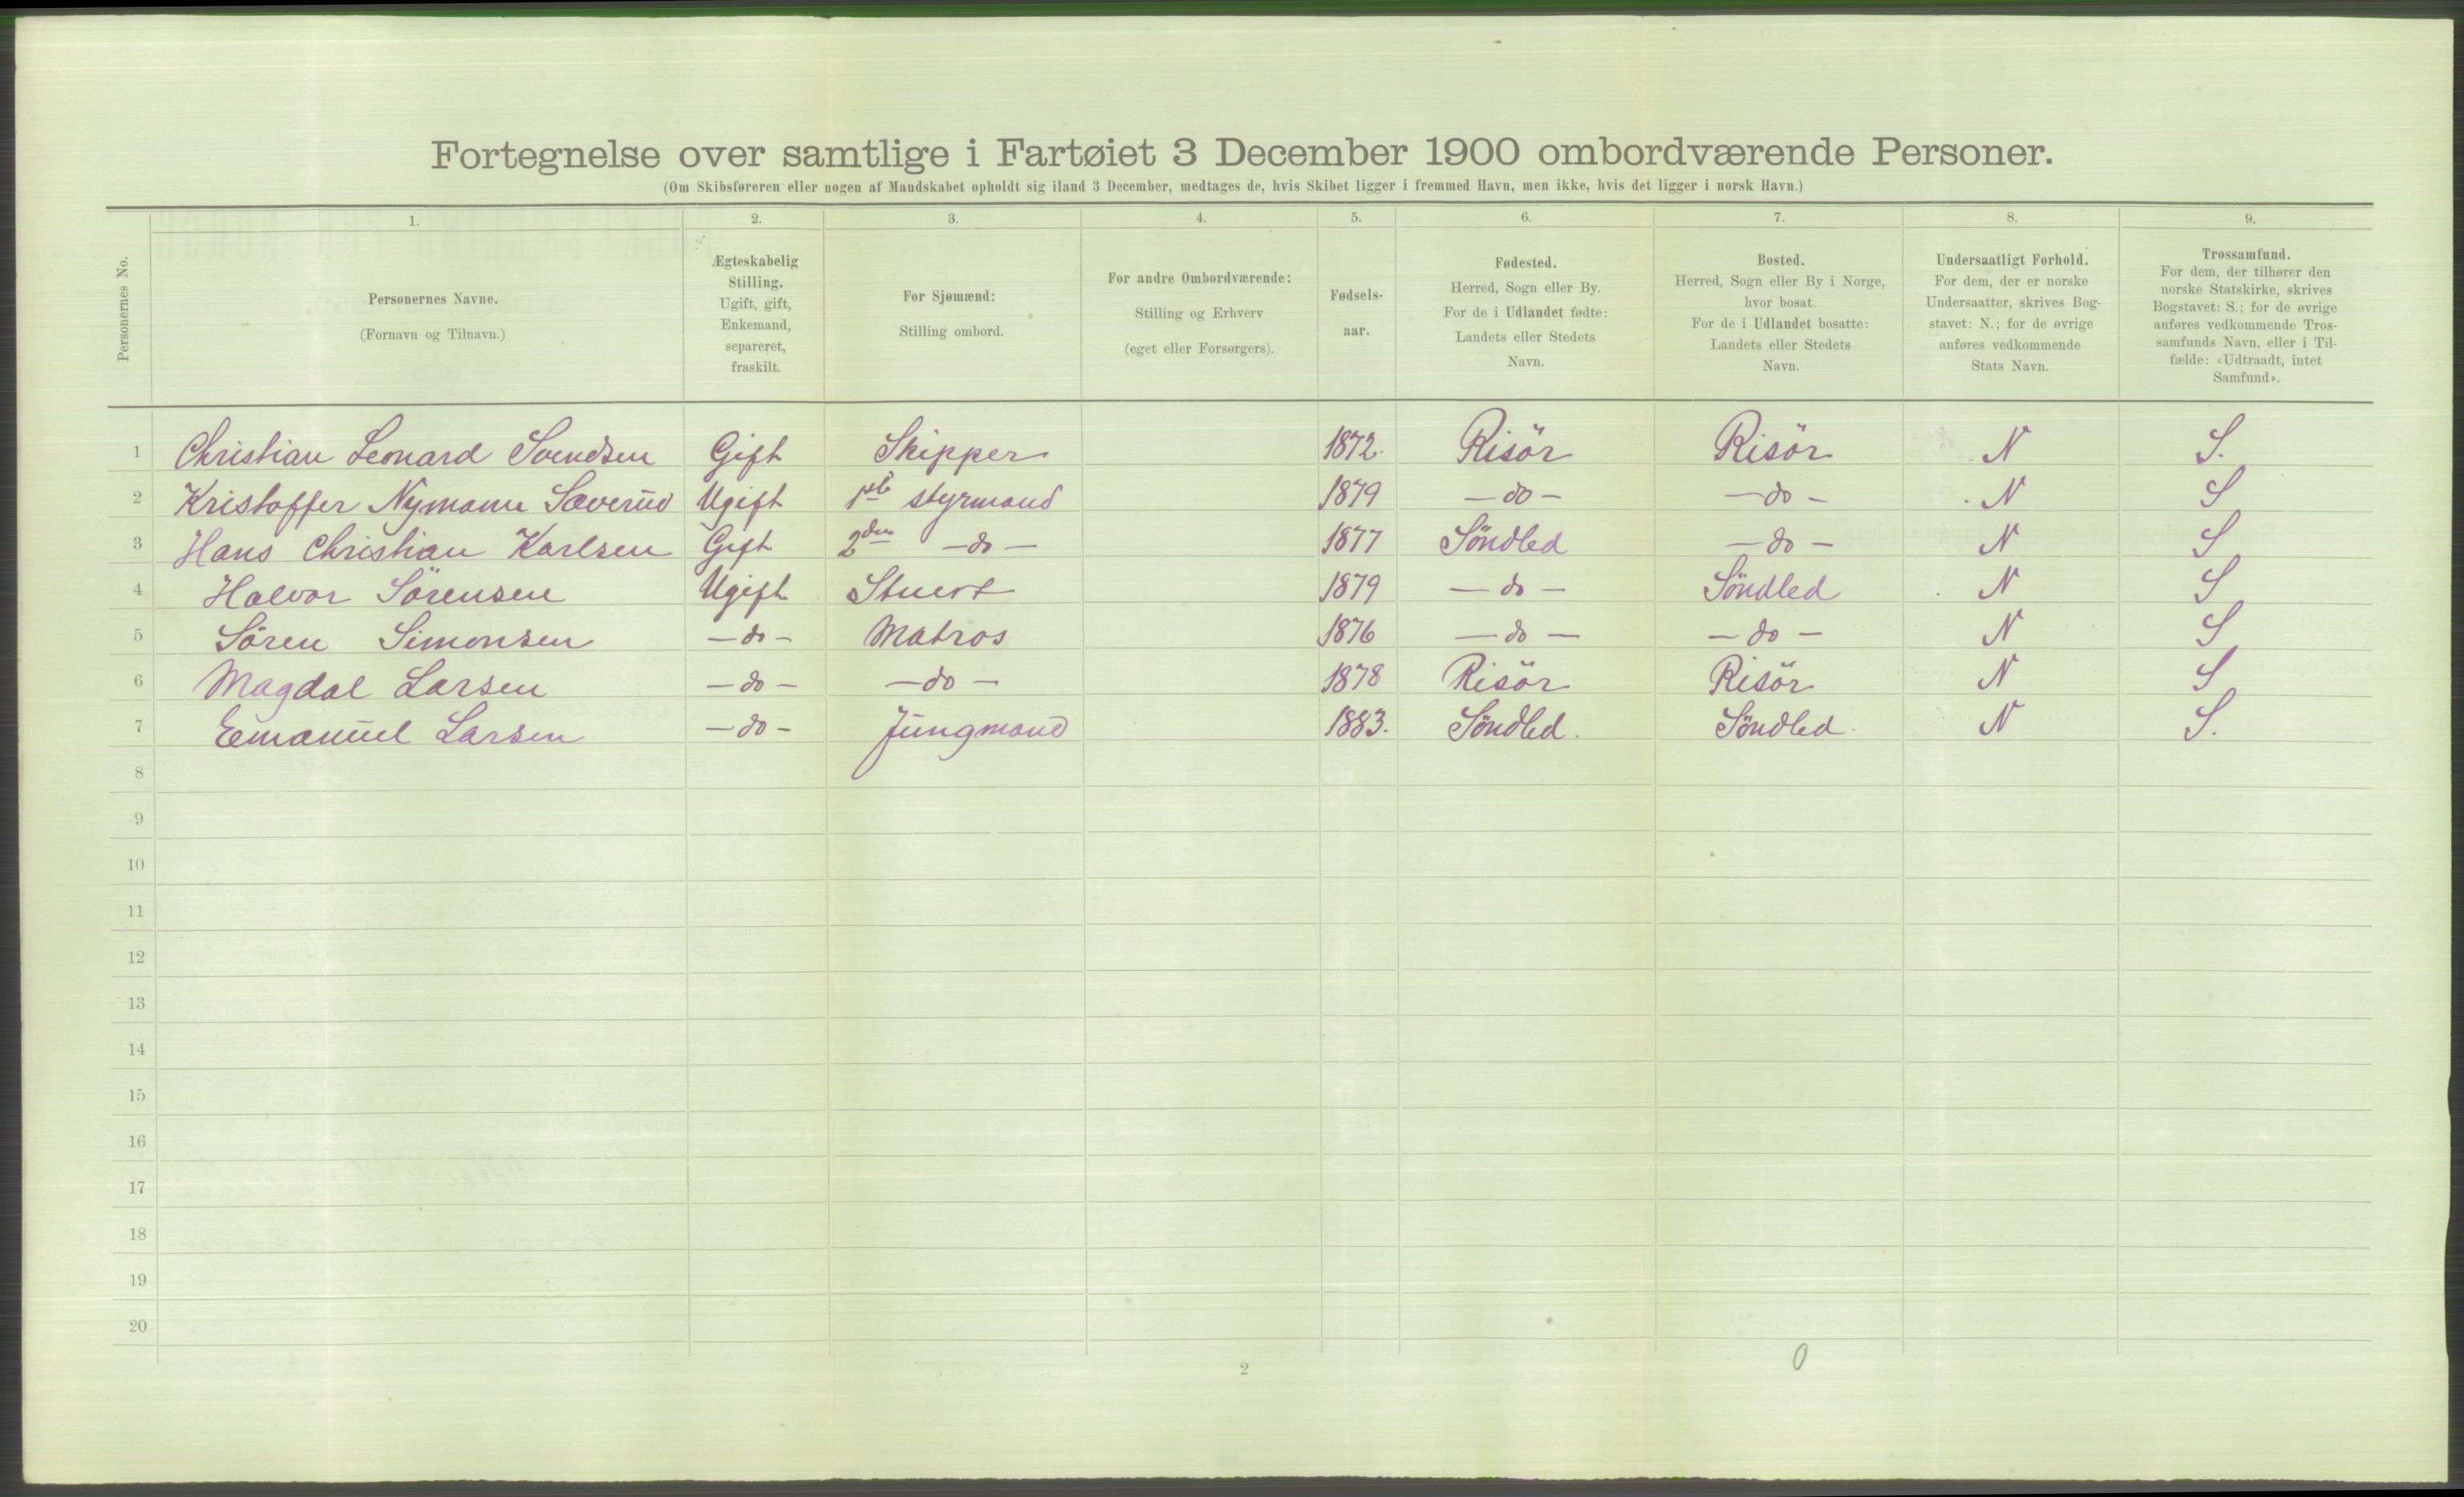 Fortegnelse over samtlige i Fartøiet 3 December 1900 ombordværende Personer.
(Om Skibsføreren eller nogen af Mandskabet opholdt sig iland 3 December, medtages de, hvis Skibet ligger i fremmed Havn, men ikke, hvis det ligger i norsk Havn.)
Personernes No.
1. 2. 3. 4. 5. 6. 7. 8. 9.
Personernes Navne.
(Fornavn og Tilnavn.)
Ægteskabelig
Stilling.
Ugift, gift,
Enkemand,
separeret,
fraskilt.
For Sjømænd:
Stilling ombord.
For andre Ombordværende:
Stilling og Erhverv
(eget eller Forsørgers).
Fødsels-
aar.
Fødested.
Herred, Sogn eller By.
For de i Udlandet fødte:
Landets eller Stedets
Navn.
Bosted.
Herred, Sogn eller By i Norge,
hvor bosat.
For de i Udlandet bosatte:
Landets eller Stedets
Navn.
Undersaatligt Forhold.
For dem, der er norske
Undersaatter, skrives Bog-
stavet: N.; for de øvrige
anføres vedkommende
Stats Navn.
Trossamfund.
For dem, der tilhører den
norske Statskirke, skrives
Bogstavet: S.; for de øvrige
anføres vedkommende Tros-
samfunds Navn, eller i Til-
fælde: «Udtraadt, intet
Samfund».
1 Christian Leonard Svendsen Gift Skipper 1872. Risör Risör N S.
2 Kristoffer Nymann Sæverud Ugift 1ste styrmand 1879 - do - - do - N S
3 Hans Christian Karlsen Gift 2den - do - 1877 Söndled - do - N S
4 Halvor Sörensen Ugift Stuert 1879 - do - Söndled N S
5 Sören Simonsen - do - Matros 1876 - do - - do - N S
6 Magdal Larsen - do - - do - 1878 Risör Risör N S
7 Emanuel Larsen - do - Jungmand 1883. Söndled. Söndled. N S.
8
9
10
11
12
13
14
15
16
17
18
19
20
2
0